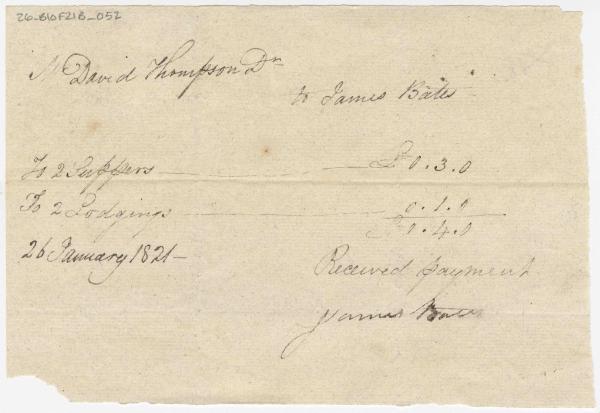 26-B10F21B_052
Mr David Thompson Dr
to James Bates
To 2 Suppers £0.3.0
To 2 Lodgings 0.1.0
£0.4.0
26 January 1821-
Received payment
James Bates